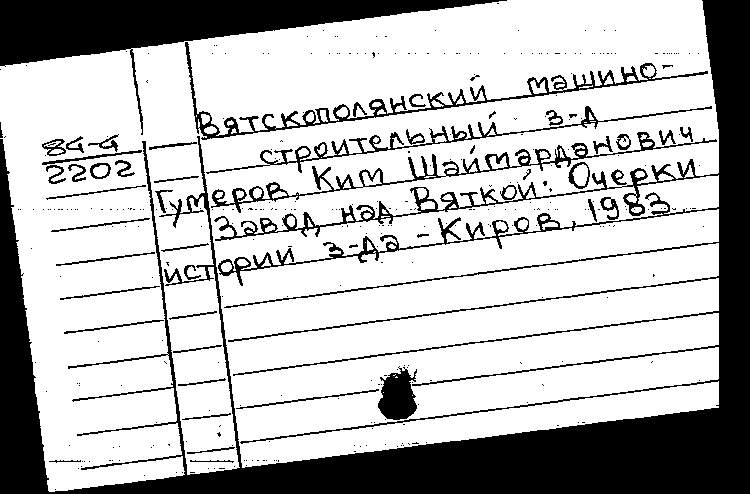 Вятскополянский машино-
строительный з-д
84-4
2202
Гумеров, Ким Шаймарданович.
Завод над Вяткой: Очерки
истории з-да - Киров, 1983